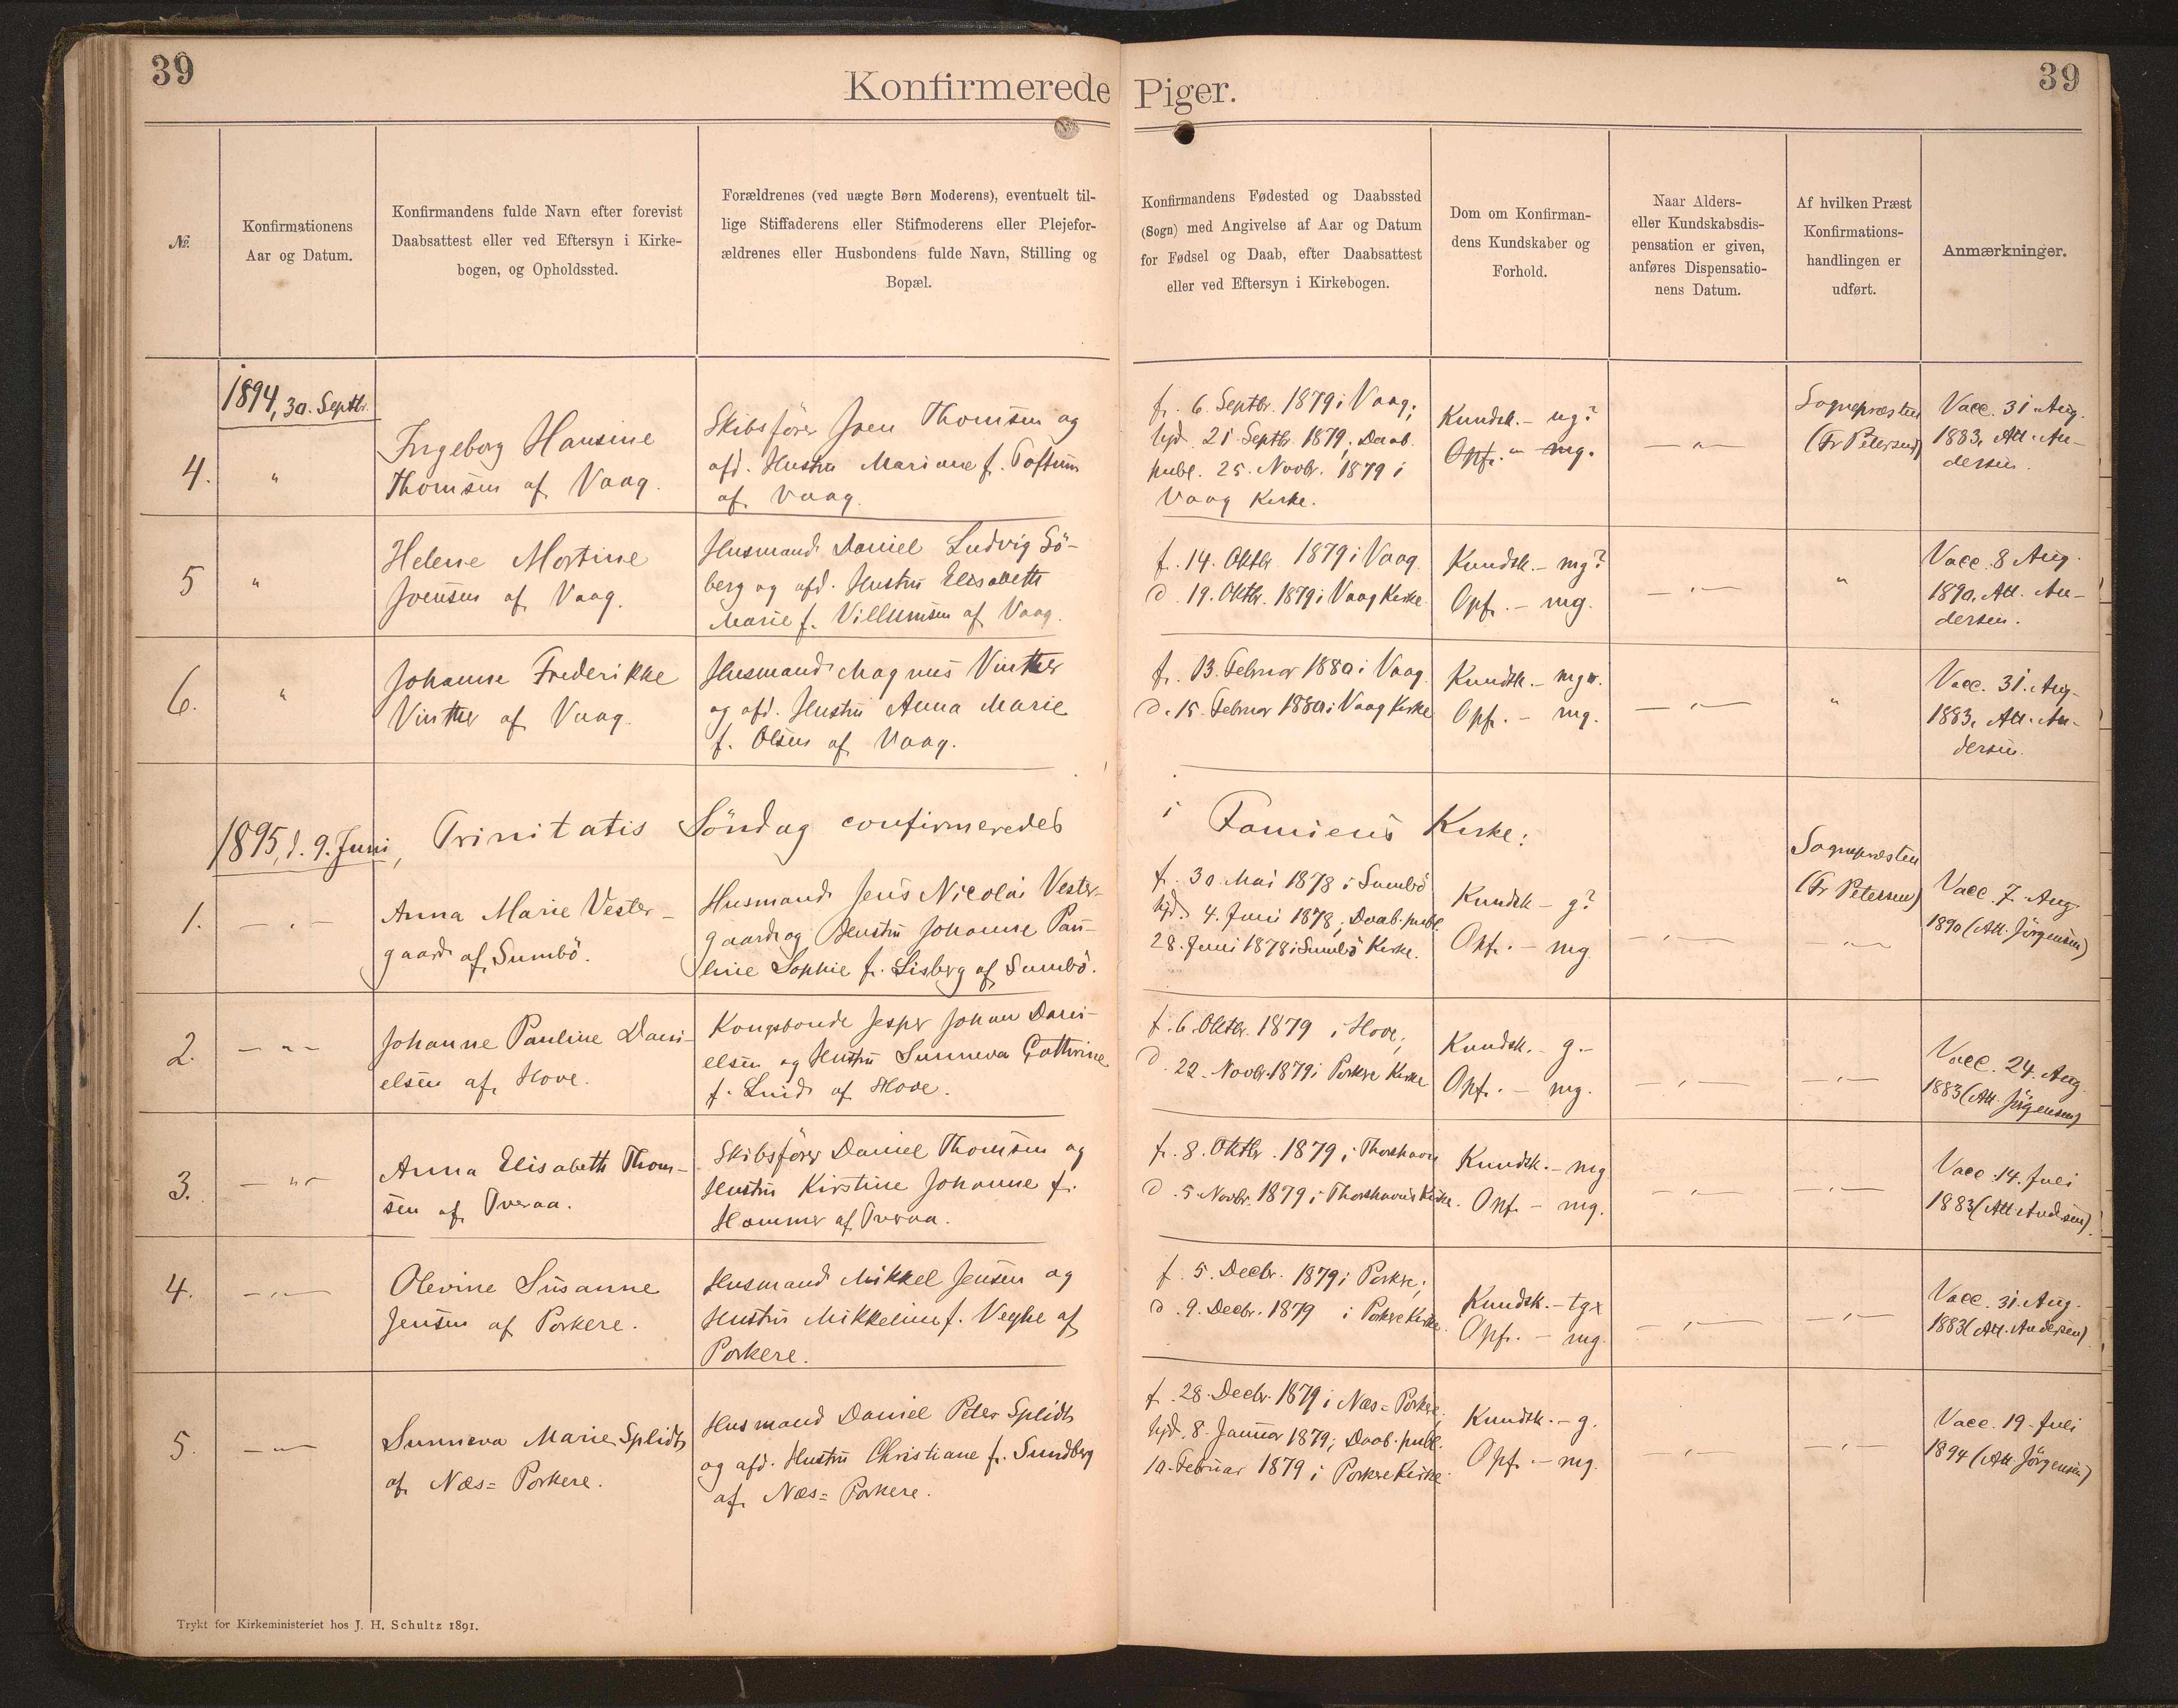 39
Konfirmerede Piger.
39
№.
Konfirmationens
Aar og Datum.
Konfirmandens fulde Navn efter forevist
Daabsattest eller ved Eftersyn i Kirke-
bogen, og Opholdssted.
Forældrenes (ved uægte Børn Moderens), eventuelt til-
lige Stiffaderens eller Stifmoderens eller Plejefor-
ældrenes eller Husbondens fulde Navn, Stilling og
Bopæl.
Konfirmandens Fødested og Daabssted
(Sogn) med Angivelse af Aar og Datum
for Fødsel og Daab, efter Daabsattest
eller ved Eftersyn i Kirkebogen.
Dom om Konfirman-
dens Kundskaber og
Forhold.
Naar Alders-
eller Kundskabsdis-
pensation er given,
anføres Dispensatio-
nens Datum.
Af hvilken Præst
Konfirmations-
handlingen er
udført.
Anmærkninger.
1894, 30. Septbr.
4.
"
Ingeborg Hansine
Thomsen af Vaag.
Skibsfører Joen Thomsen og
afd. Hustru Mariane f. Toftum
af Vaag.
f. 6. Septbr. 1879 i Vaag;
hjd. 21. Septbr. 1879, Daab.
publ. 25. Novbr. 1879 i
Vaag Kirke.
Kundsk. - ug?
Opf. " mg.
- " -
Sognepræsten
(Fr Petersen)
Vacc. 31 Aug.
1883, Att. An-
dersen.
5
"
Helene Mortine
Joensen af Vaag.
Husmand Daniel Ludvig Sö-
berg og afd. Hustru Elisabeth
Marie f. Villumsen af Vaag.
f. 14. Oktbr. 1879 i Vaag
d. 19. Oktbr. 1879 i Vaag Kirke
Kundsk. - mg?
Opf. - mg.
- " -
"
Vacc. 8 Aug.
1890, Att. An-
dersen.
6.
"
Johanne Frederikke
Vinther af Vaag.
Husmand Magnus Vinther
og afd. Hustru Anna Marie
f. Olsen af Vaag.
f. 13. Februar 1880 i Vaag
d. 15. Februar 1880 i Vaag Kirke
Kundsk. - mg
Opf. - mg.
- " -
"
Vacc. 31. Aug.
1883, Att. An-
dersen.
1895, d. 9. Juni, Trinitatis Söndag confirmeredes i Famiens Kirke:
1.
- " -
Anna Marie Vester-
gaard af Sumbö.
Husmand Jens Nicolai Vester-
gaard og Hustru Johanne Pau-
line Sophie f. Lisberg af Sumbö.
f. 30 Mai 1878 i Sumbö
hjd. 4. Juni 1878, Daab. publ.
28. Juni 1878 i Sumbö Kirke.
Kundsk - g?
Opf. - mg.
- " -
Sognepræsten
(Fr Petersen)
- " -
Vacc. 7. Aug.
1890 (Att. Jörgensen)
2.
- " -
Johanne Pauline Dani-
elsen af Hove.
Kongsbonde Jesper Johan Dani-
elsen og Hustru Sunneva Cathrine
f. Lind af Hove.
f. 6. Oktbr. 1879 i Hove;
d. 22. Novbr. 1879 i Porkere Kirke
Kundsk. - g. -
Opf. - mg.
- " -
- " -
Vacc. 24. Aug.
1883 (Att. Jörgensen)
3.
- " -
Anna Elisabeth Thom-
sen af Tveraa.
Skibsfører Daniel Thomsen og
Hustru Kirstine Johanne f.
Hammer af Tveraa.
f. 8. Oktbr. 1879 i Thorshavn
d. 5. Novbr. 1879 i Thorshavns Kirke.
Kundsk. - mg
Opf. - mg.
- " -
- " -
Vacc. 14. Juli
1883 (Att. Andersen).
4.
- " -
Olevine Susanne
Jensen af Porkere.
Husmand Mikkel Jensen og
Hustru Mikkeline f. Veyhe af
Porkere.
f. 5. Decbr. 1879 i Porkere;
d. 9. Decbr. 1879 i Porkere Kirke.
Kundsk. - tgx
Opf. - mg.
- " -
- " -
Vacc. 31. Aug.
1883 (Att. Andersen).
5.
- " -
Sunneva Marie Splidt
af Næs= Porkere.
Husmand Daniel Peter Splidt
og afd. Hustru Christiane f. Sundberg
af Næs= Porkere.
f. 28. Decbr. 1879 i Næs= Porkere;
hjd. 8. Januar 1879; Daab. publ.
10. Februar 1879 i Porkere Kirke.
Kundsk. - g.
Opf. - mg.
- " -
- " -
Vacc. 19. Juli
1894 (Att. Jörgensen)
Trykt for Kirkeministeriet hos J. H. Schultz 1891.